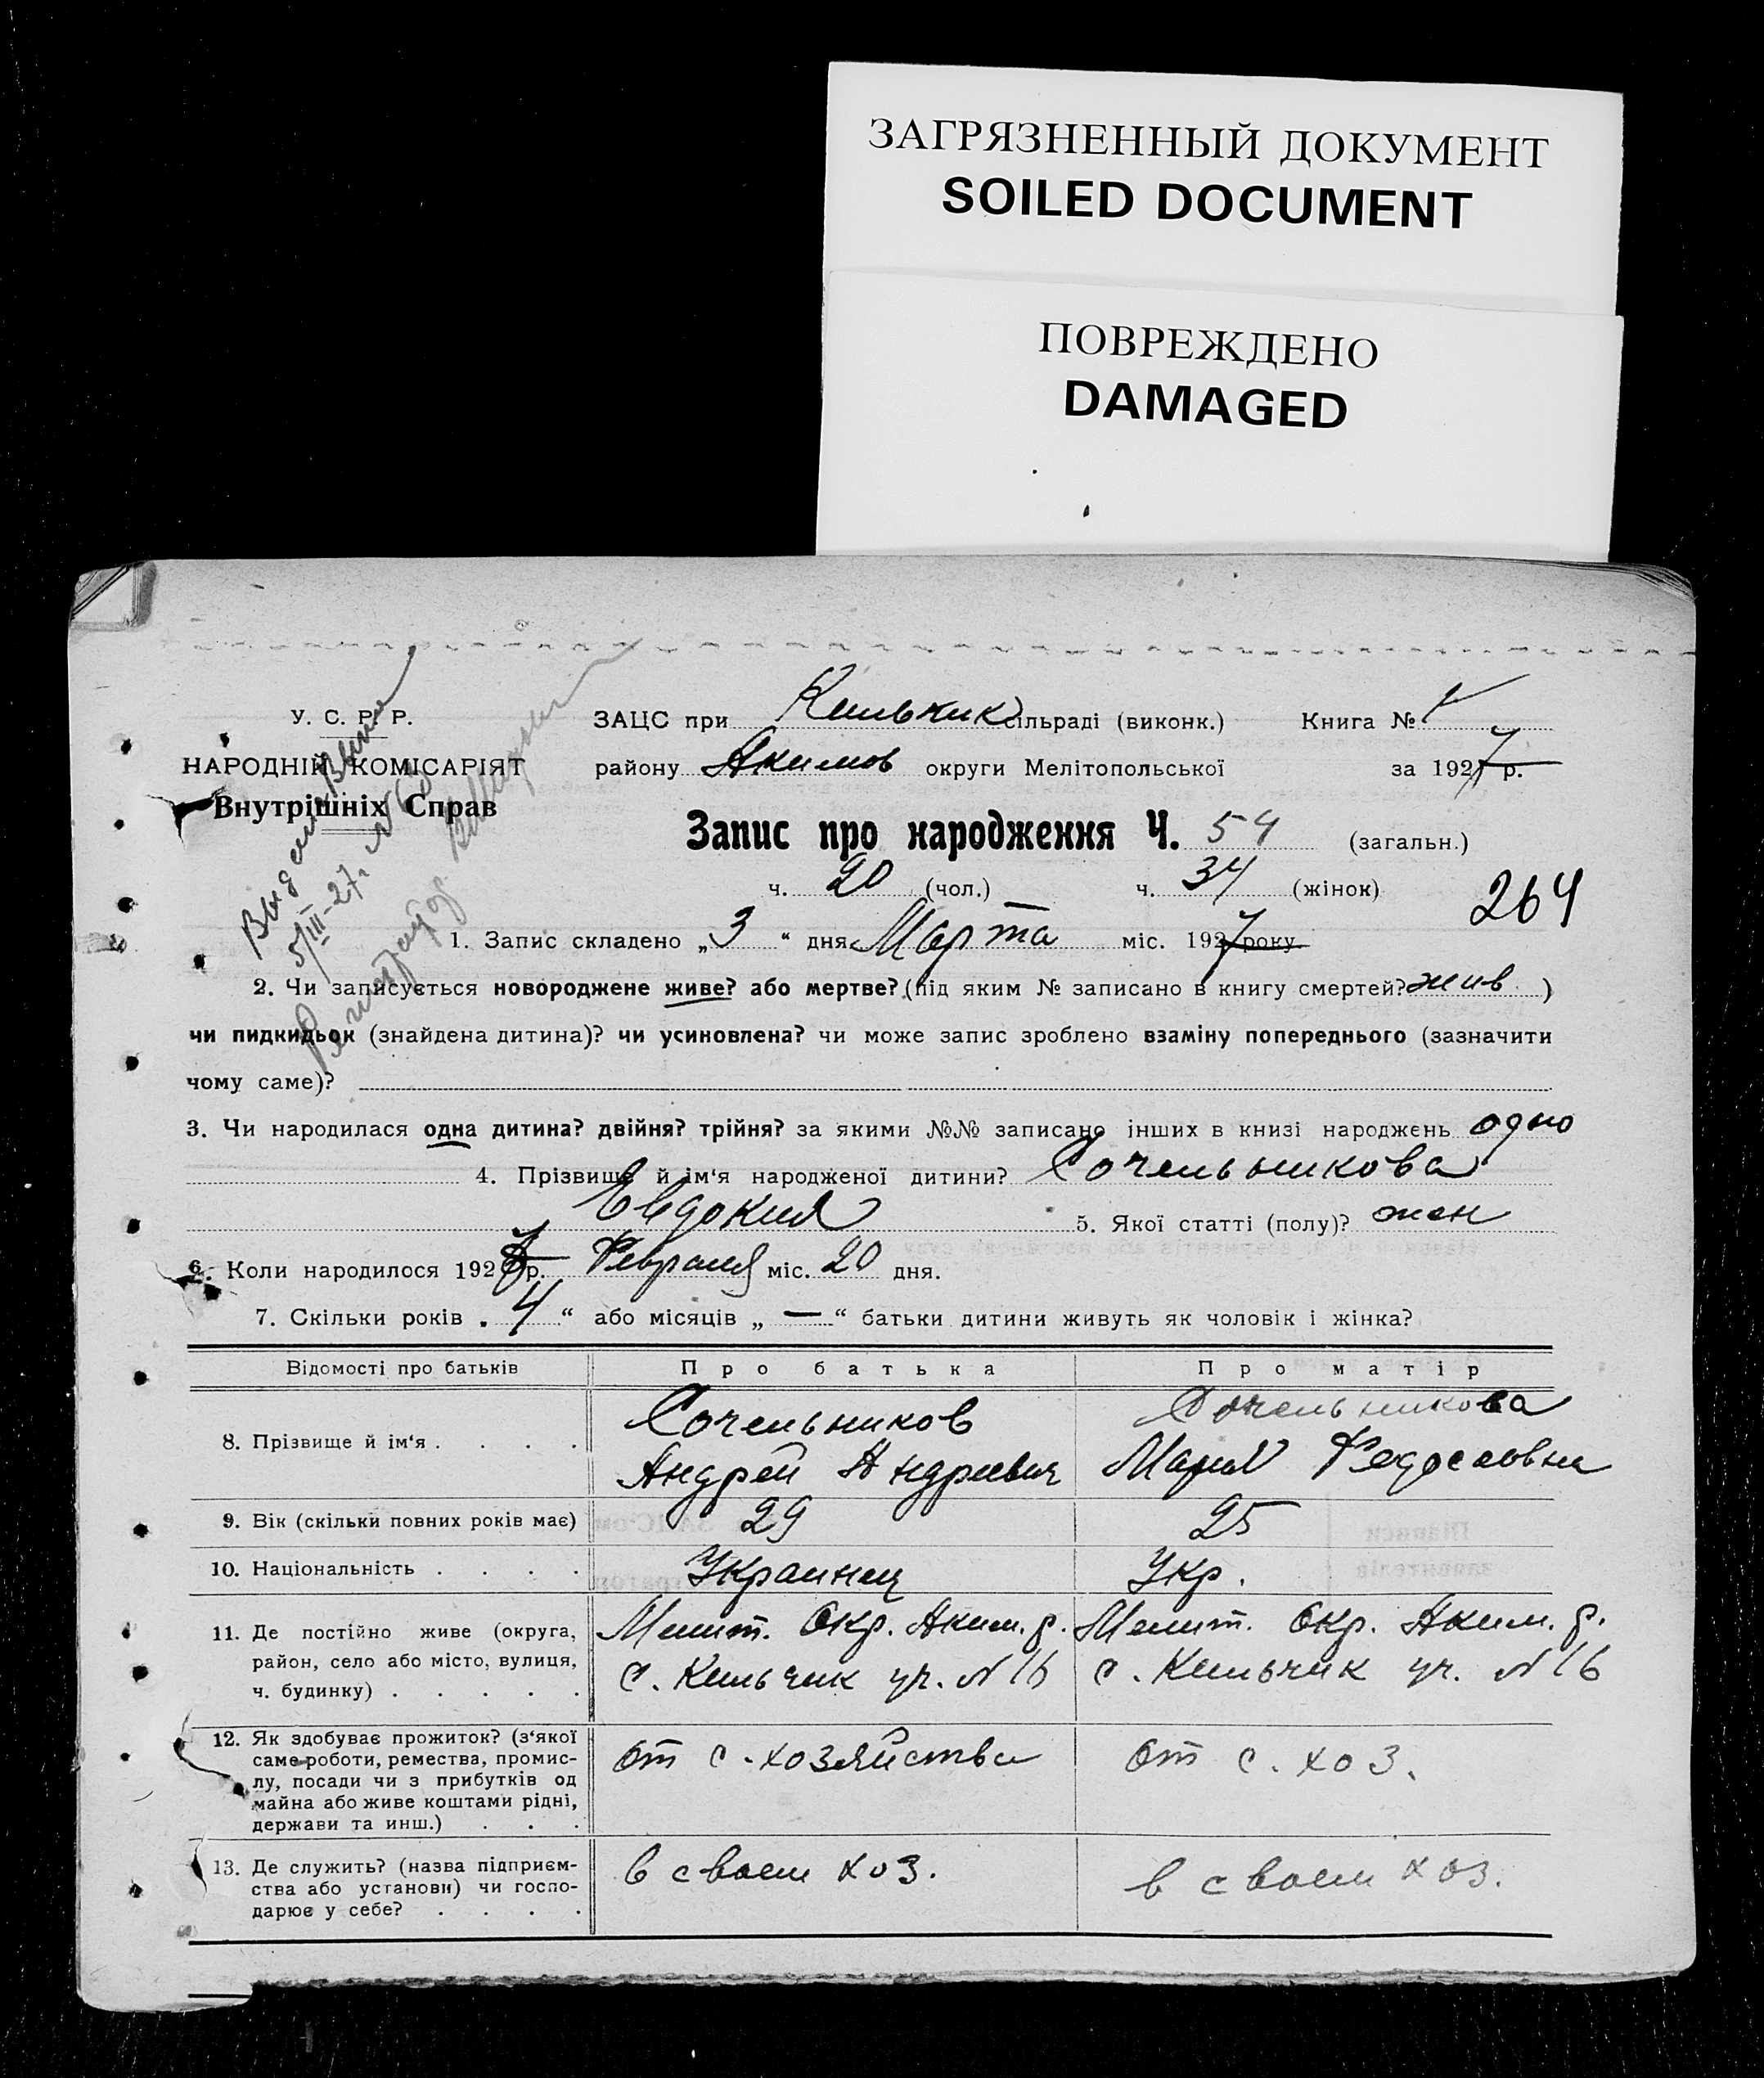 ЗАГРЯЗНЕННЫЙ ДОКУМЕНТ
SOILED DOCUMENT
ПОВРЕЖДЕНО
DAMAGED
У. С. Р. Р.
НАРОДНІЙ КОМІСАРІЯТ
Внутрішніх Справ
ЗАЦС при Кильчик сільраді (виконк.) Книга №
району Акимов округи Мелітопольської за 1927 р.
Запис про народження Ч. 54 (загальн.)
ч. 20 (чол.) ч. 34 (жінок)
264
5/III-27г
1. Запис складено „3“ дня Марта міс. 1927 року.
2. Чи записується новороджене живе? або мертве? (під яким № записано в книгу смертей? жив )
чи пидкидьок (знайдена дитина)? чи усиновлена? чи може запис зроблено взаміну попереднього (зазначити
чому саме)?
3. Чи народилася одна дитина? двійня? трійня? за якими №№ записано інших в книзі народжень одно
4. Прізвище й ім‘я народженої дитини? Сочельникова
Евдокия 5. Якої статті (полу)? жен
6. Коли народилося 1927 р. Февраля міс. 20 дня.
7. Скільки років „4“ або місяців „—“ батьки дитини живуть як чоловік і жінка?
Відомості про батьків Про батька Про матір
8. Прізвище й ім‘я . . . . Сочельников Сочельникова
Андрей Андреевич Мария Федосеовна
9. Вік (скільки повних років має) 29 25
10. Національність . . . . Украинец Укр.
11. Де постійно живе (округа, Мелит. Окр. Аким. р. Мелит. Окр. Аким. р.
район, село або місто, вулиця, с. Кильчик уч. № 16 с. Кильчик уч. № 16
ч. будинку) . . . . .
12. Як здобуває прожиток? (з‘якої
саме роботи, ремества, промис- от с. хозяйства от с. хоз.
лу, посади чи з прибутків од
майна або живе коштами рідні,
держави та инш.) . . .
13. Де служить? (назва підприєм- в своем хоз. в своем хоз.
ства або установи) чи госпо-
дарює у себе? . . . .